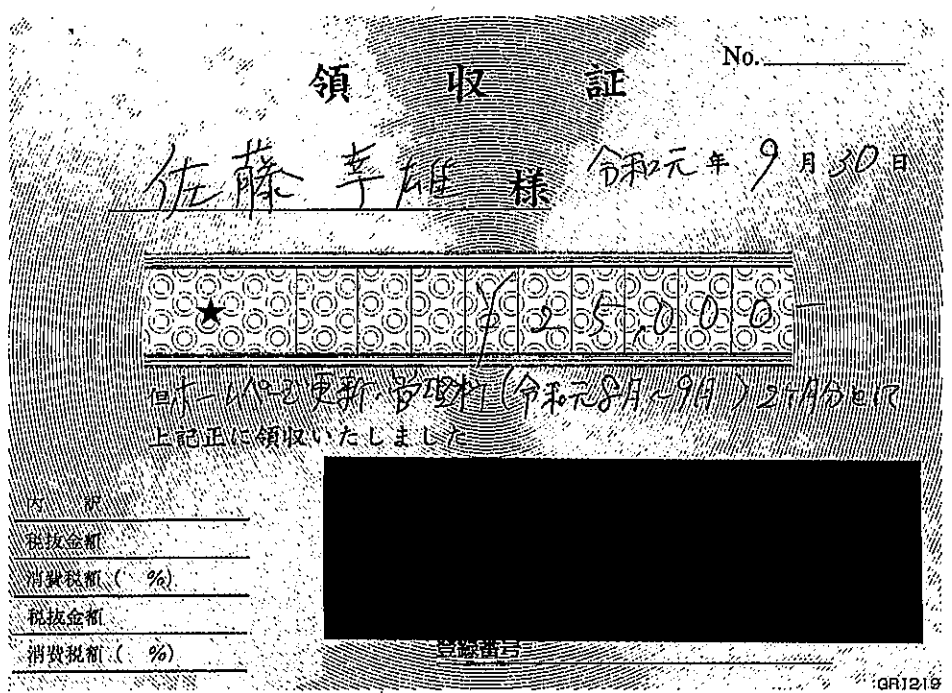 No.
領収証
佐藤幸雄 様
令和元年9月30日
★ ¥25,000-
但ホームページ更新・管理料(令和元8月~9月)2ヶ月分として
上記正に領収いたしました
内訳
税抜金額
消費税額( %)
税抜金額
消費税額( %)
登録番号
GR1219